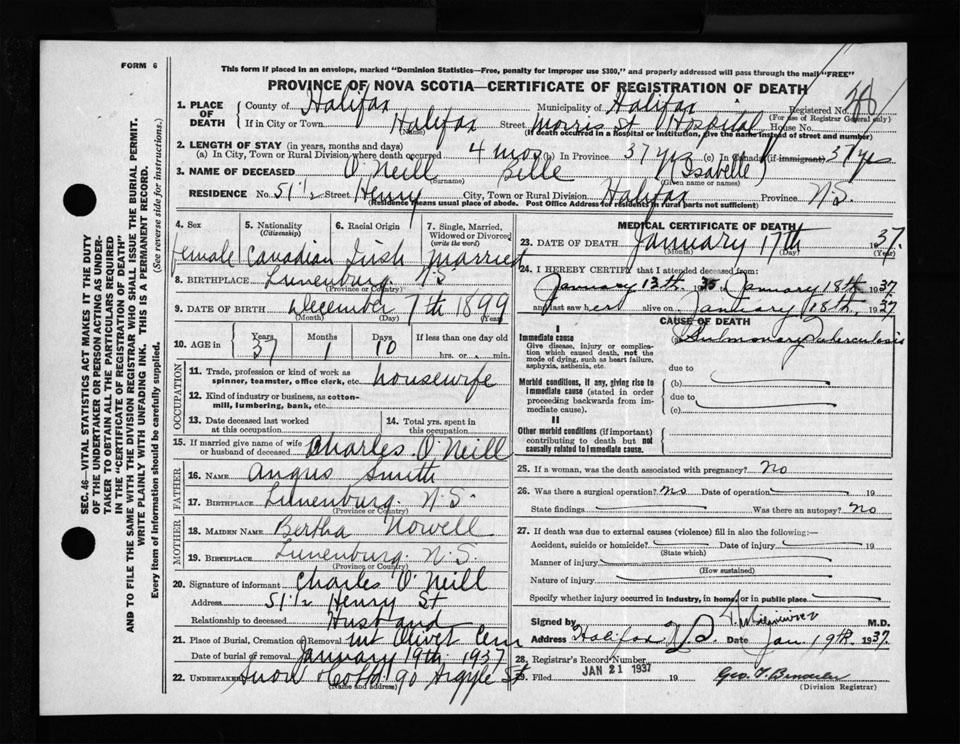 FORM 6
This form if placed in an envelope, marked "Dominion Statistics—Free, penalty for improper use $300," and properly addressed will pass through the mail "FREE"
PROVINCE OF NOVA SCOTIA—CERTIFICATE OF REGISTRATION OF DEATH
1. PLACE OF DEATH County of Halifax Municipality of Halifax Registered No.
(For use of Registrar General only)
If in City or Town Halifax Street Morris St Hospital House No.
(Name) (If death occurred in a hospital or institution, give the name instead of street and number)
2. LENGTH OF STAY (in years, months and days)
(a) In City, Town or Rural Division where death occurred 4 mos (b) In Province 37 yrs (c) In Canada (if immigrant) 37 yrs
3. NAME OF DECEASED O'Neill Bille (Isabelle)
(Surname) (Given name or names)
RESIDENCE No. 51½ Street Henry City, Town or Rural Division Halifax Province N.S.
(Residence means usual place of abode. Post Office Address for residents in rural parts not sufficient)
4. Sex 5. Nationality (Citizenship) 6. Racial Origin 7. Single, Married, Widowed or Divorced (write the word)
Female Canadian Irish Married
8. BIRTHPLACE Lunenburg N.S.
(Province or Country)
9. DATE OF BIRTH December 7th 1899
(Month) (Day) (Year)
10. AGE in Years Months Days If less than one day old
37 1 10 hrs. or min.
OCCUPATION
11. Trade, profession or kind of work as spinner, teamster, office clerk, etc. housewife
12. Kind of industry or business, as cotton-mill, lumbering, bank, etc.
13. Date deceased last worked at this occupation 14. Total yrs. spent in this occupation
15. If married give name of wife or husband of deceased Charles O'Neill
FATHER
16. NAME Angus Smith
17. BIRTHPLACE Lunenburg. N.S.
(Province or Country)
MOTHER
18. MAIDEN NAME Bertha Nowell
19. BIRTHPLACE Lunenburg. N.S.
(Province or Country)
20. Signature of informant Charles O'Neill
Address 51½ Henry St
Relationship to deceased Husband
21. Place of Burial, Cremation or Removal Mt Olivet Cem
Date of burial or removal January 19th 1937
22. UNDERTAKER Snow & Co Ltd 90 Argyle St
(Name and address)
MEDICAL CERTIFICATE OF DEATH
23. DATE OF DEATH January 17th 1937.
(Month) (Day) (Year)
24. I HEREBY CERTIFY that I attended deceased from:
January 13th 1935 January 18th 1937
and last saw her alive on January 18th 1937
CAUSE OF DEATH
I
Immediate cause
Give disease, injury or complication which caused death, not the mode of dying, such as heart failure, asphyxia, asthenia, etc.
(a) Pulmonary Tuberculosis
due to
Morbid conditions, if any, giving rise to immediate cause (stated in order proceeding backwards from immediate cause).
(b)
due to
(c)
II
Other morbid conditions (if important) contributing to death but not causally related to immediate cause.
25. If a woman, was the death associated with pregnancy? No
26. Was there a surgical operation? No Date of operation 19
State findings Was there an autopsy? No
27. If death was due to external causes (violence) fill in also the following:—
Accident, suicide or homicide? Date of injury 19
(State which)
Manner of injury
(How sustained)
Nature of injury
Specify whether injury occurred in industry, in home, or in public place
Signed by M.D.
Address Halifax N.S. Date Jan. 19th. 1937.
28. Registrar's Record Number
29. Filed JAN 21 1937 19
(Division Registrar)
SEC. 46—VITAL STATISTICS ACT MAKES IT THE DUTY
OF THE UNDERTAKER OR PERSON ACTING AS UNDER-
TAKER TO OBTAIN ALL THE PARTICULARS REQUIRED
IN THE "CERTIFICATE OF REGISTRATION OF DEATH"
AND TO FILE THE SAME WITH THE DIVISION REGISTRAR WHO SHALL ISSUE THE BURIAL PERMIT.
WRITE PLAINLY WITH UNFADING INK. THIS IS A PERMANENT RECORD.
Every item of information should be carefully supplied. (See reverse side for instructions.)